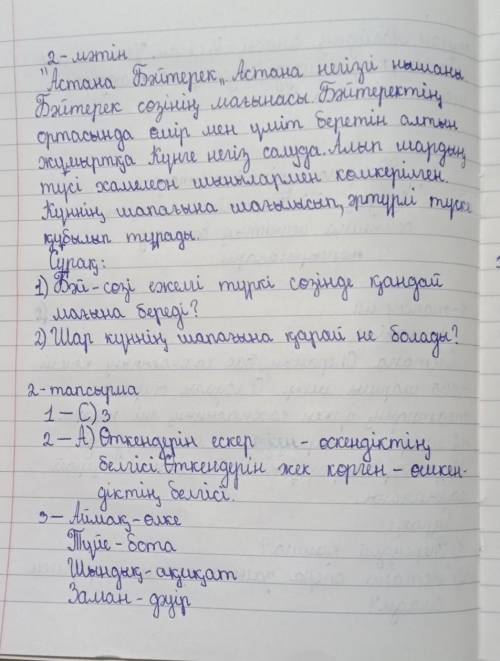 2-мәтін
"Астана Бәйтерек„ Астана негізгі нышаны
Бәйтерек сөзінің мағынасы. Бәйтеректің
ортасында өмір мен үміт беретін алтын
жұмыртқа Күнге негіз салуда. Алып шардың
түсі хамелеон шынылармен көмкерілген.
Күннің шапағына шағылысып, әртүрлі түске
құбылып тұрады.
Сұрақ:
1) Бәй-сөзі ежелгі түркі сөзінде қандай
мағына береді?
2) Шар күннің шапағына қарай не болады?
2-тапсырма
1 – С) 3
2 – А) Өткендерін ескер - өскендіктің
белгісі. Өткендерін жек көрген – өшкен-
діктің белгісі.
3 – Аймақ-өлке
Түйе - бота
Шындық-ақиқат
Заман - дәуір